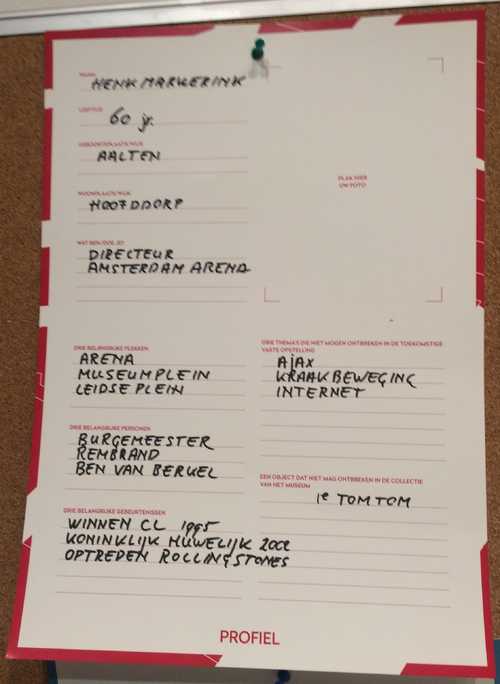 NAAM
HENK MARKERINK
LEEFTIJD
60 jr.
GEBOORTEPLAATS/WIJK
AALTEN
WOONPLAATS/WIJK
HOOFDDORP
WAT BEN/DOE JIJ
DIRECTEUR
AMSTERDAM ARENA
PLAK HIER
UW FOTO
DRIE BELANGRIJKE PLEKKEN
ARENA
MUSEUMPLEIN
LEIDSE PLEIN
DRIE BELANGRIJKE PERSONEN
BURGEMEESTER
REMBRAND
BEN VAN BERKEL
DRIE BELANGRIJKE GEBEURTENISSEN
WINNEN CL 1995
KONINKLIJK HUWELIJK 2002
OPTREDEN ROLLINGSTONES
DRIE THEMA'S DIE NIET MOGEN ONTBREKEN IN DE TOEKOMSTIGE
VASTE OPSTELLING
AJAX
KRAAKBEWEGING
INTERNET
EEN OBJECT DAT NIET MAG ONTBREKEN IN DE COLLECTIE
VAN HET MUSEUM
1e TOMTOM
PROFIEL